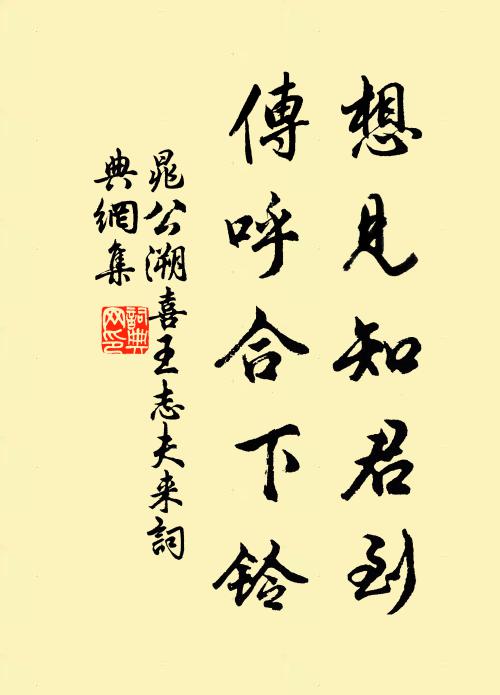 想見知君到
傳呼合下鈴
晁公溯喜王志夫来詞
典網集
詞典
网印